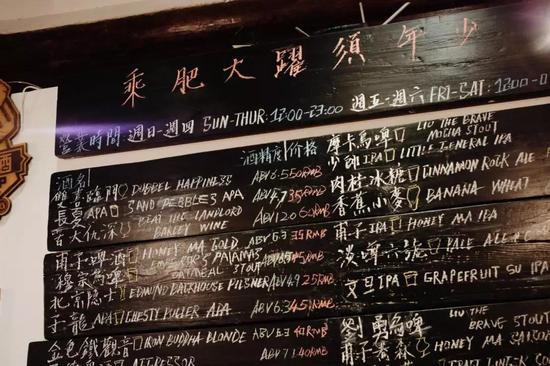 乘肥大躍須年少
營業時間：週日-週四 SUN-THUR: 12:00-23:00 週五-週六 FRI-SAT: 12:00-0
酒名 酒精度 价格
雙喜臨門 DUBBEL HAPPINESS ABV 6.5 50RMB
長夏 APA SAND PEBBLES APA ABV 4.7 35RMB
苦大仇深 BEAT THE LANDLORD BARLEY WINE ABV 12.0 60RMB
甭子啤酒 HONEY MA GOLD ABV 6.3 35RMB
EMPEROR'S PAJAMAS OATMEAL STOUT 45RMB
北京隱士 EDMUND BACKHOUSE PILSNER ABV 4.9 25RMB
子龍 APA CHESTY PULLER APA ABV 6.3 45RMB
金色鐵觀音 IRON BUDDHA BLONDE 40RMB
ABV 7.1 40RMB
摩卡烏啤 LIU THE BRAVE MOCHA STOUT
少帥 IPA LITTLE GENERAL IPA
肉桂冰糖 CINNAMON ROCK ALE
香蕉小麥 BANANA WHEAT
HONEY MA IPA
淡啤六號 PALE ALE NO
文旦 IPA GRAPEFRUIT SU IPA
LIU THE BRAVE STOUT
HONEY MA
酒